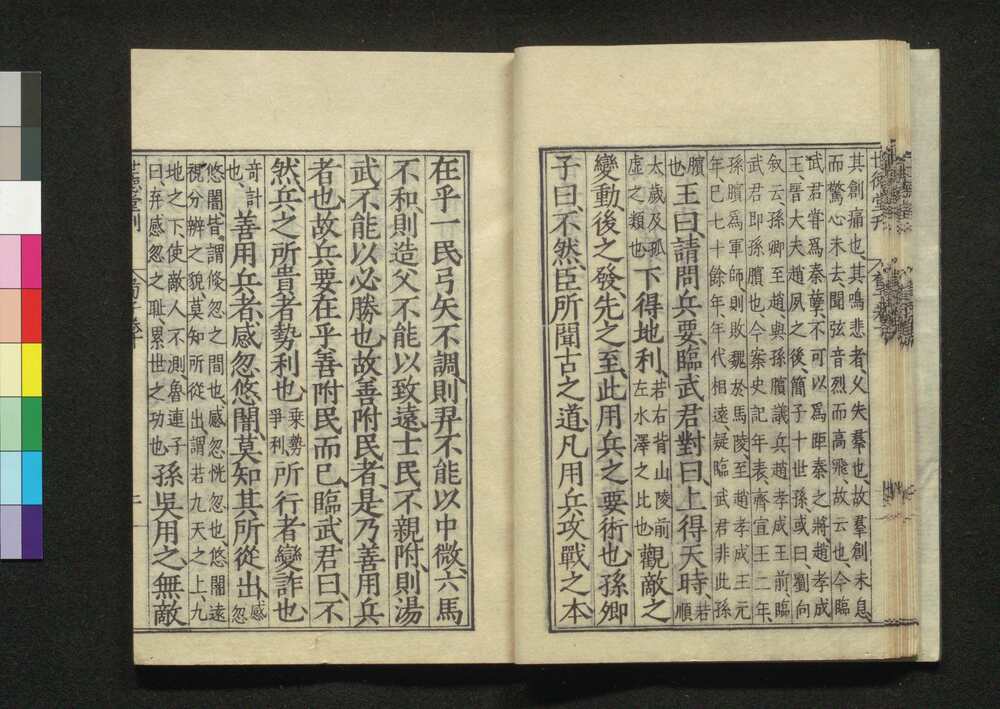 其創痛也、其鳴悲者、久失羣也故羣創未息
而驚心未去、聞弦音烈而高飛、故云也、今臨
武君甞爲秦孼、不可以爲距秦之將、趙孝成
王、晋大夫趙夙之後、簡子十世孫、或曰、劉向
叙云、孫卿至趙、與孫臏議兵趙孝成王前、臨
武君即孫臏也、今案史記年表、齊宣王二年、
孫臏爲軍師、則敗魏於馬陵、至趙孝成王元
年、已七十餘年、年代相遠、疑臨武君非此孫
臏也、王曰、請問兵要、臨武君對曰、上得天時、若順
太歲及孤虛之類也下得地利、若右背山陵前左水澤之比也觀敵之
變動、後之發、先之至、此用兵之要術也、孫卿
子曰、不然、臣所聞古之道、凡用兵攻戰之本
在乎一民、弓矢不調、則羿不能以中微、六馬
不和、則造父不能以致遠、士民不親附、則湯
武不能以必勝也、故善附民者、是乃善用兵
者也、故兵要在乎善附民而已、臨武君曰、不
然、兵之所貴者勢利也、乘勢爭利、所行者變詐也
奇計也、善用兵者、感忽悠闇、莫知其所從出、感忽
悠闇、皆謂倏忽之間也、感忽恍忽也悠闇遠
視、不分辨之貌、莫知所從出、謂若九天之上、九
地之下、使敵人不測、魯連子曰、弃感忽之恥、累世之功也、孫吳用之、無敵